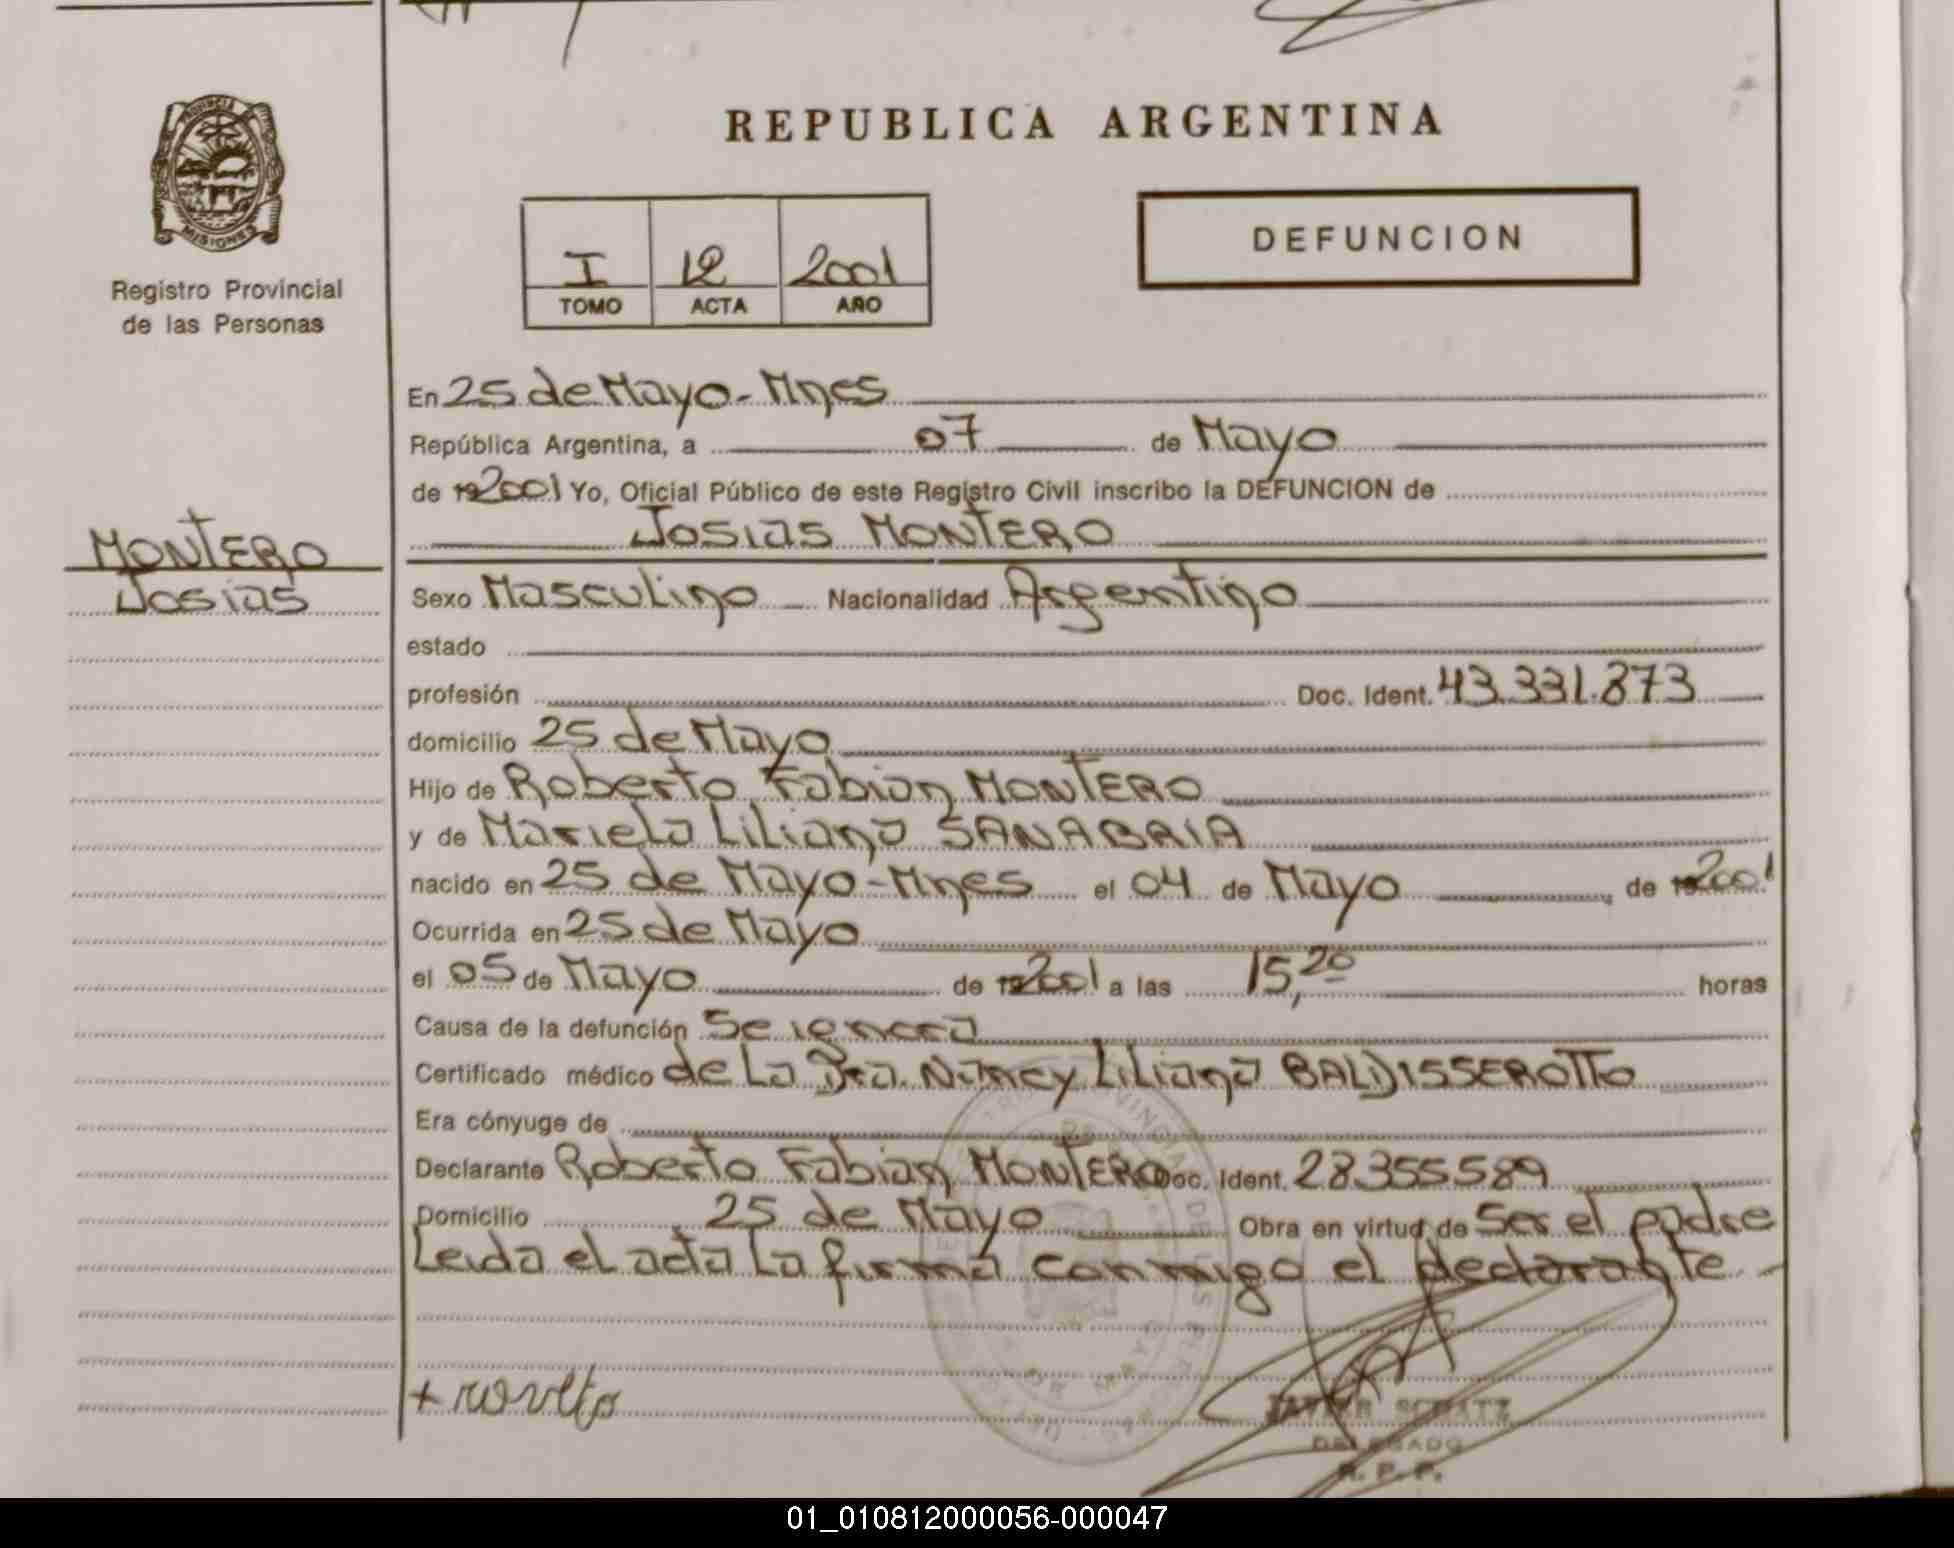 REPUBLICA ARGENTINA
PROVINCIA
MISIONES
Registro Provincial
de las Personas
I 12 2001
TOMO ACTA AÑO
DEFUNCION
En 25 de Mayo - Mnes
República Argentina, a 07 de Mayo
de 192001 Yo, Oficial Público de este Registro Civil inscribo la DEFUNCION de
Josias MONTERO
MONTERO
Josias
Sexo Masculino Nacionalidad Argentino
estado
profesión Doc. Ident. 43.331.873
domicilio 25 de Mayo
Hijo de Roberto Fabian MONTERO
y de Mariela Liliana SANABRIA
nacido en 25 de Mayo - Mnes el 04 de Mayo, de 192001
Ocurrida en 25 de Mayo
el 05 de Mayo de 192001 a las 15,20 horas
Causa de la defunción Se ignora
Certificado médico de La Dra. Nancy Liliana BALDISSEROTTO
Era cónyuge de
Declarante Roberto Fabian MONTERO Doc. Ident. 28.355.589
Domicilio 25 de Mayo Obra en virtud de Ser el padre
Leida el acta La firma conmigo el declarante -
JAVIER SCHATZ
DELEGADO
R. P. P.
01_010812000056-000047